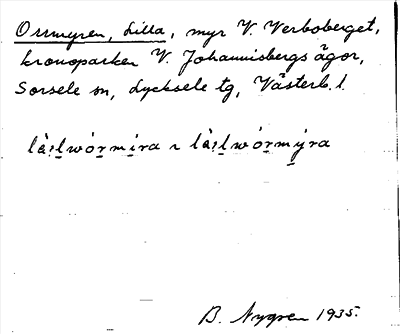 Ormmyren, Lilla, myr V. Verboberget,
kronoparken V. Johannisbergs ägor,
Sorsele sn, Lycksele tg, Västerb. l.
B. Nygren 1935.